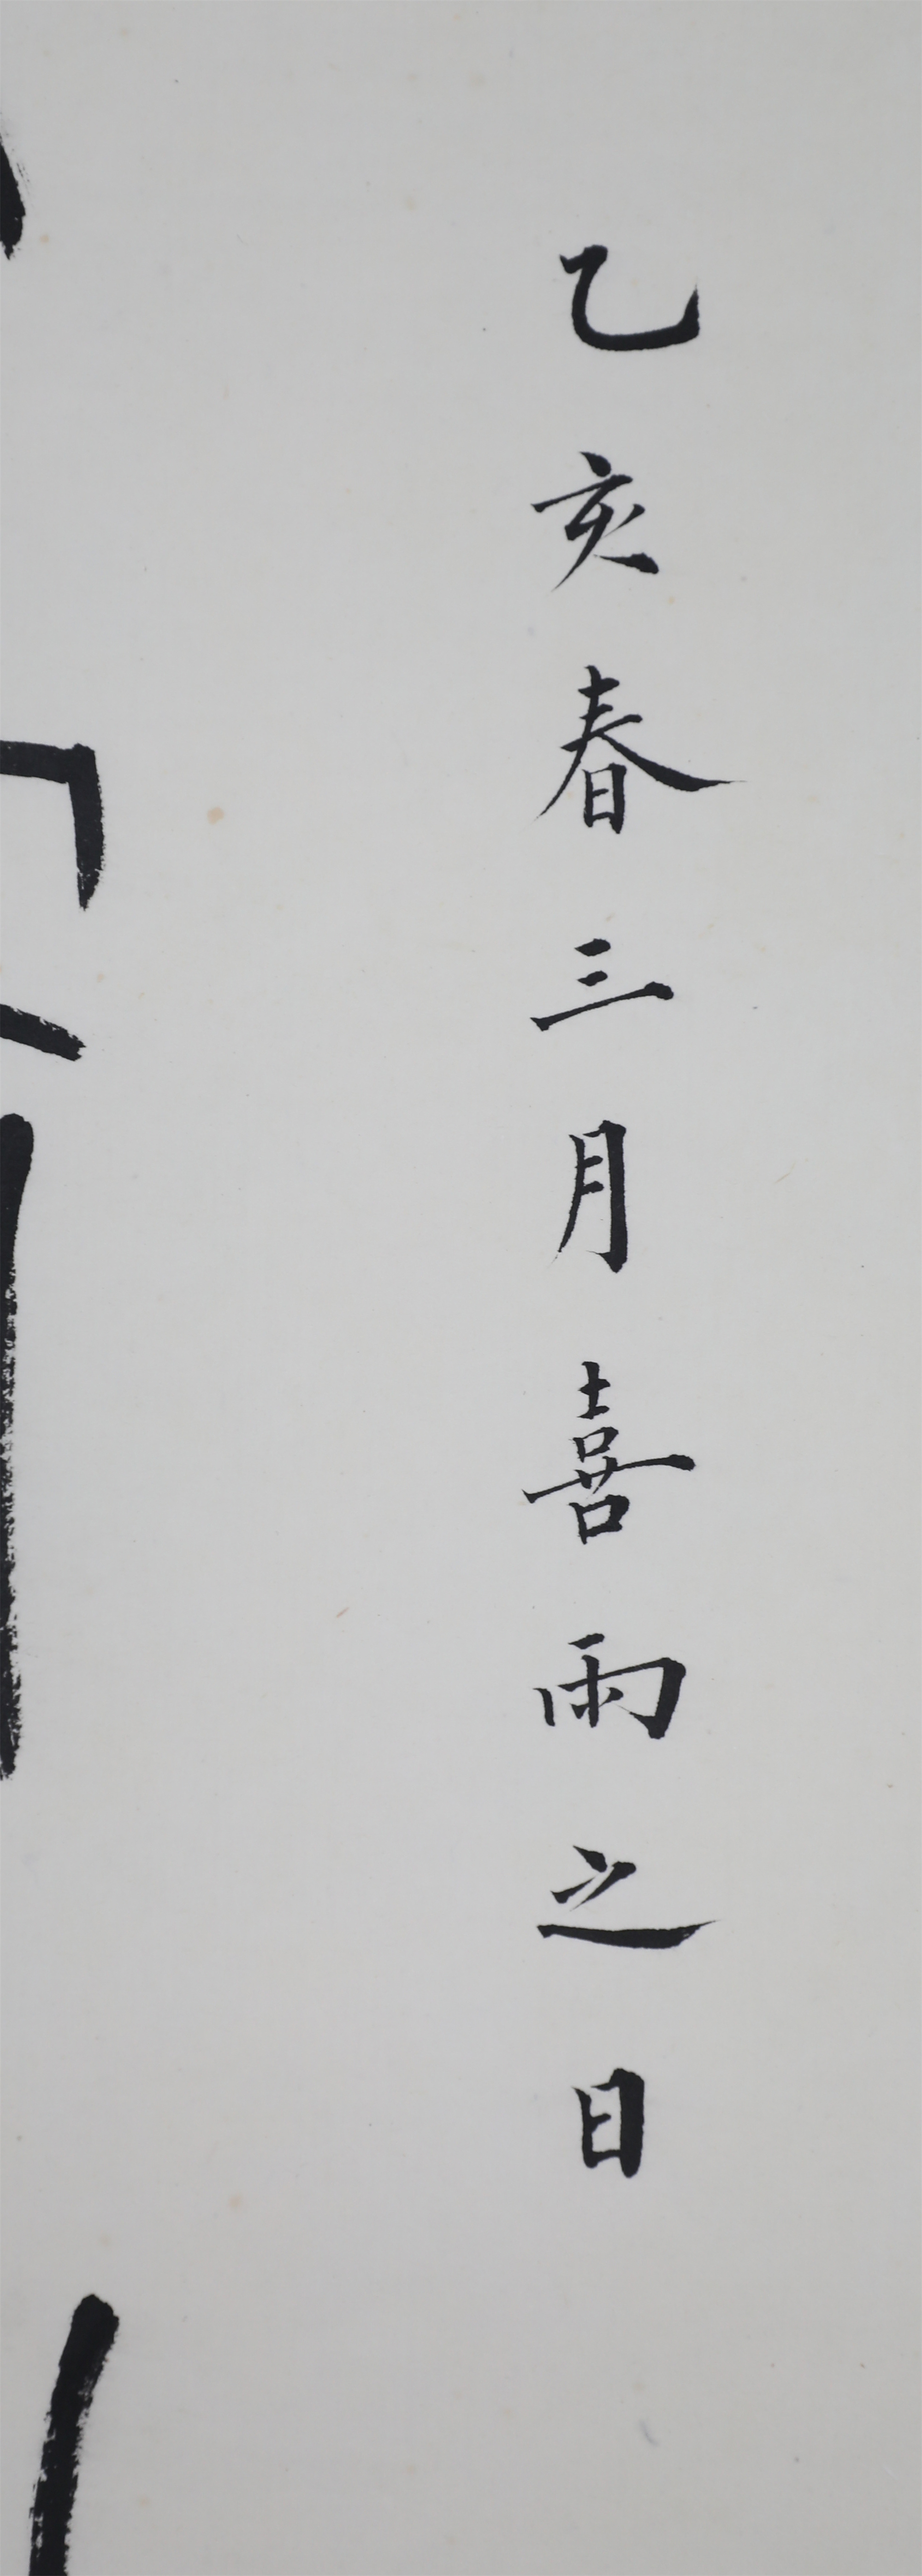 乙亥春三月喜雨之日